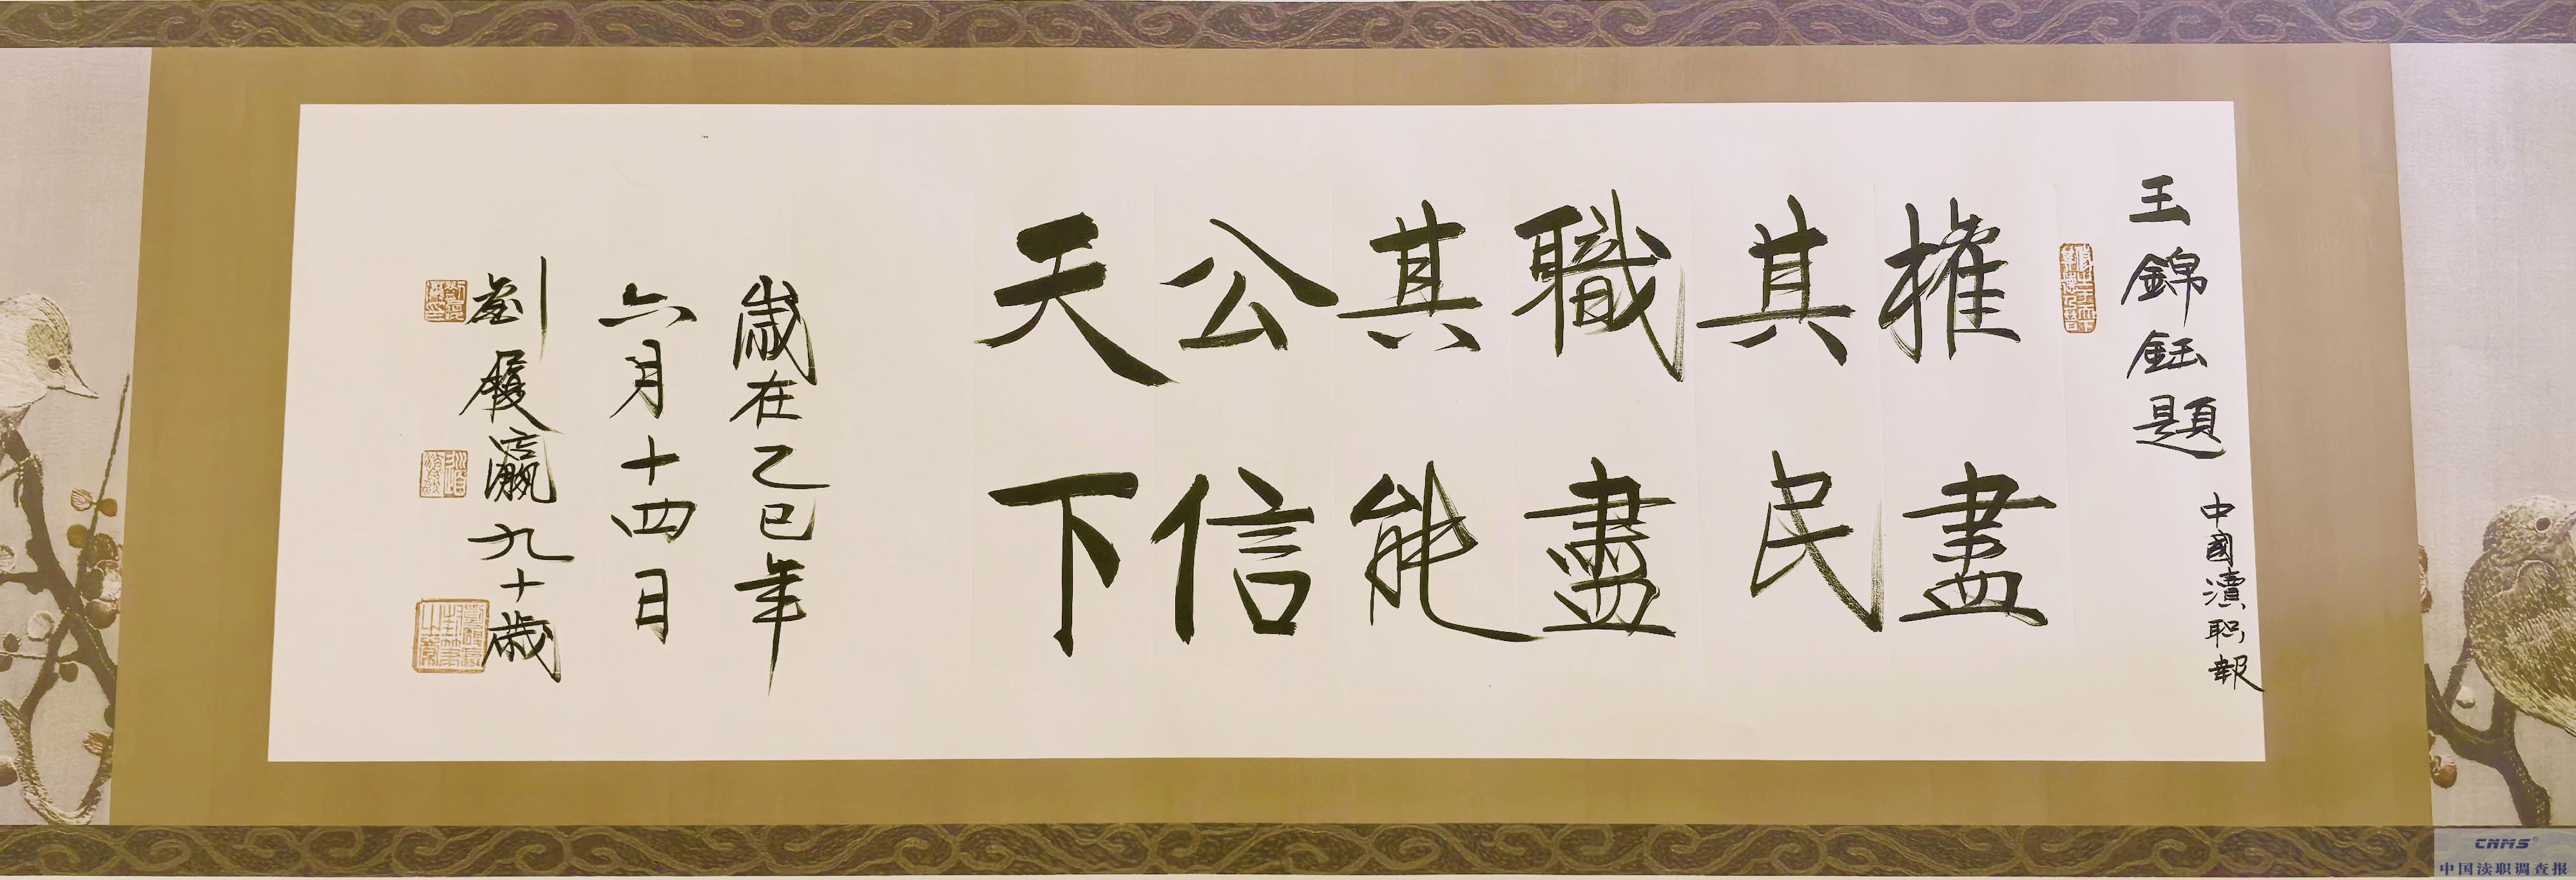 中國瀆职報
王錦鈺題
權盡
其民
職盡
其能
公信
天下
歲在乙巳年
六月十四日
劉瀛九十歲
CNMS®
中国渎职调查报